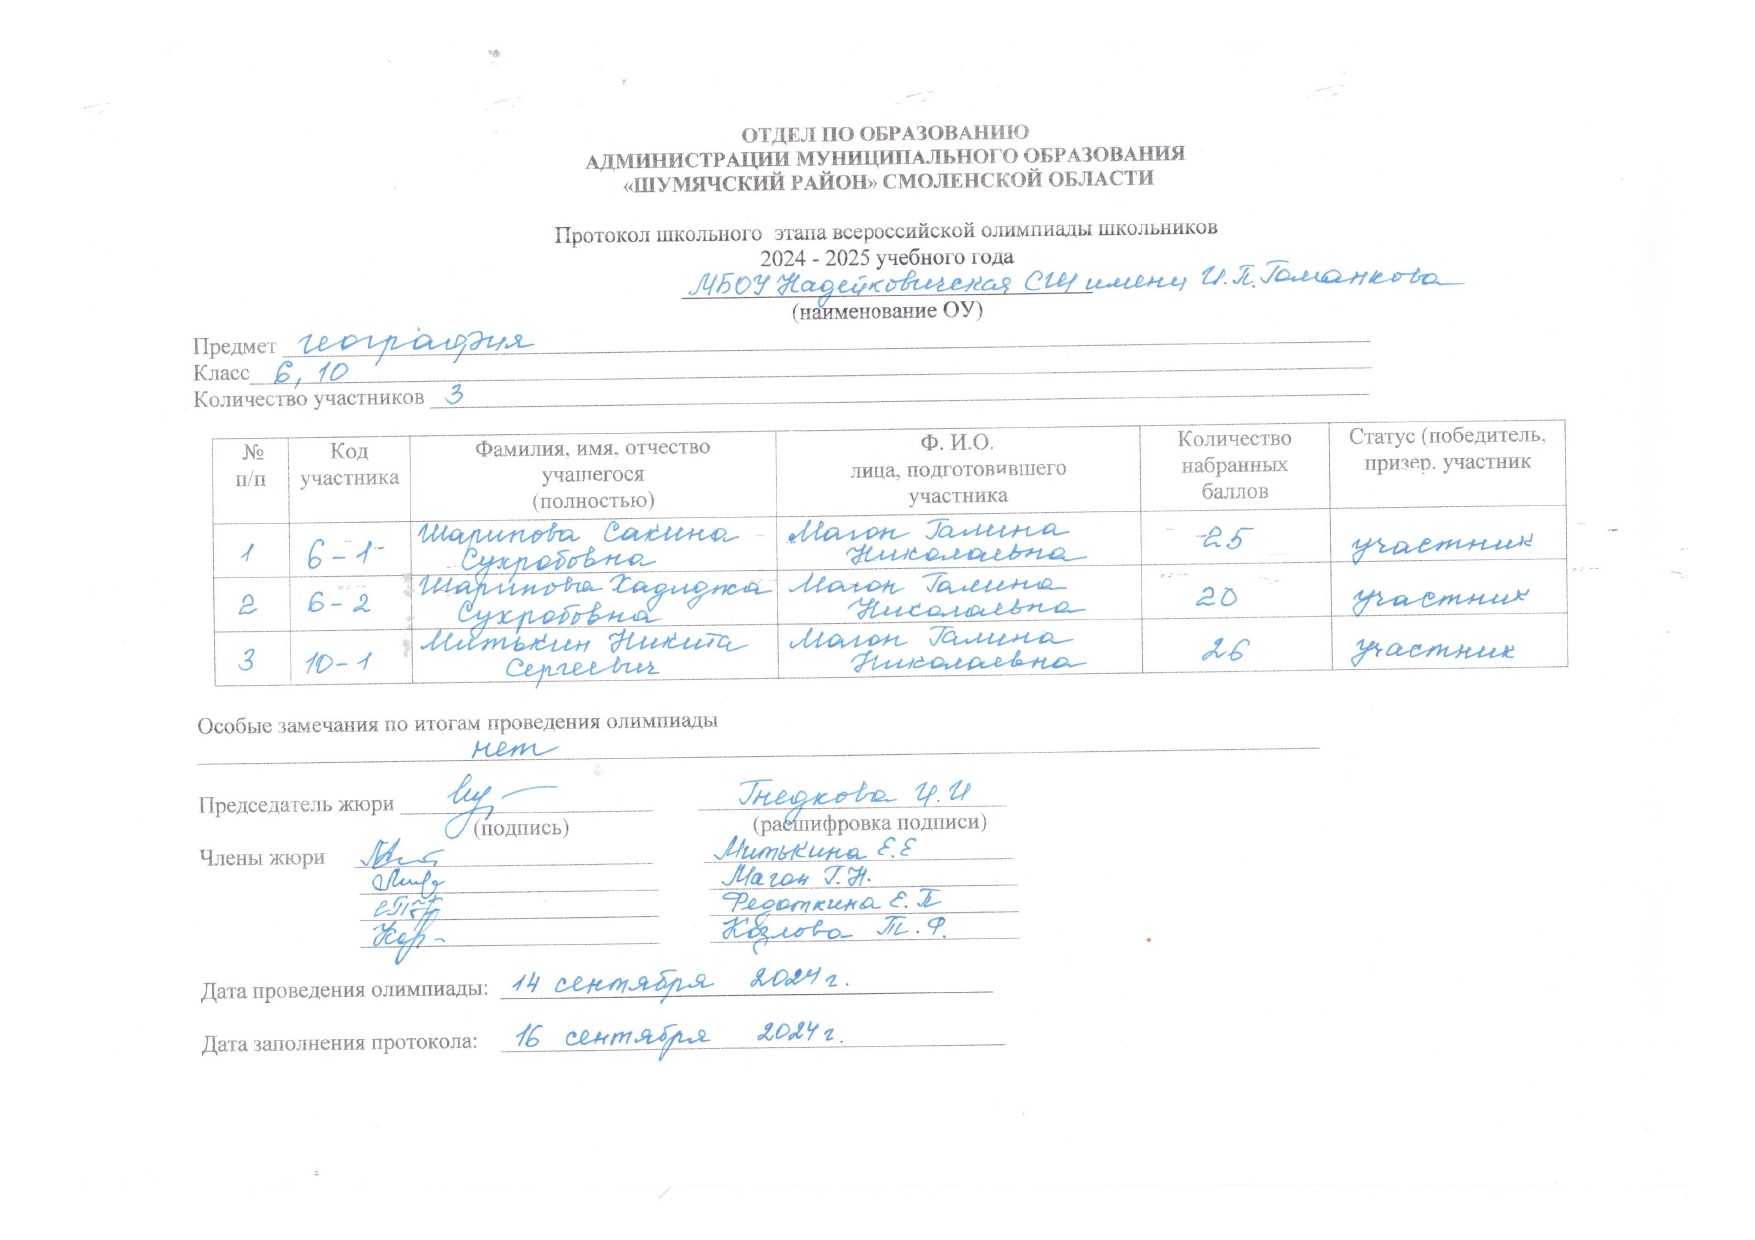 ОТДЕЛ ПО ОБРАЗОВАНИЮ
АДМИНИСТРАЦИИ МУНИЦИПАЛЬНОГО ОБРАЗОВАНИЯ
«ШУМЯЧСКИЙ РАЙОН» СМОЛЕНСКОЙ ОБЛАСТИ
Протокол школьного этапа всероссийской олимпиады школьников
2024 - 2025 учебного года
МБОУ Надейковичская СШ имени И.П.Гоманкова
(наименование ОУ)
Предмет география
Класс 6, 10
Количество участников 3
№ п/п Код участника Фамилия, имя, отчество учащегося (полностью) Ф. И.О. лица, подготовившего участника Количество набранных баллов Статус (победитель, призер. участник
1 6-1 Шарипова Сакина Сухробовна Магон Галина Николаевна 25 участник
2 6-2 Шарипова Хадиджа Сухробовна Магон Галина Николаевна 20 участник
3 10-1 Митькин Никита Сергеевич Магон Галина Николаевна 26 участник
Особые замечания по итогам проведения олимпиады
нет
Председатель жюри Гнедкова И.И
(подпись) (расшифровка подписи)
Члены жюри Митькина Е.Е
Магон Г.Н.
Федоткина Е.П
Козлова Т.Ф.
Дата проведения олимпиады: 14 сентября 2024 г.
Дата заполнения протокола: 16 сентября 2024 г.